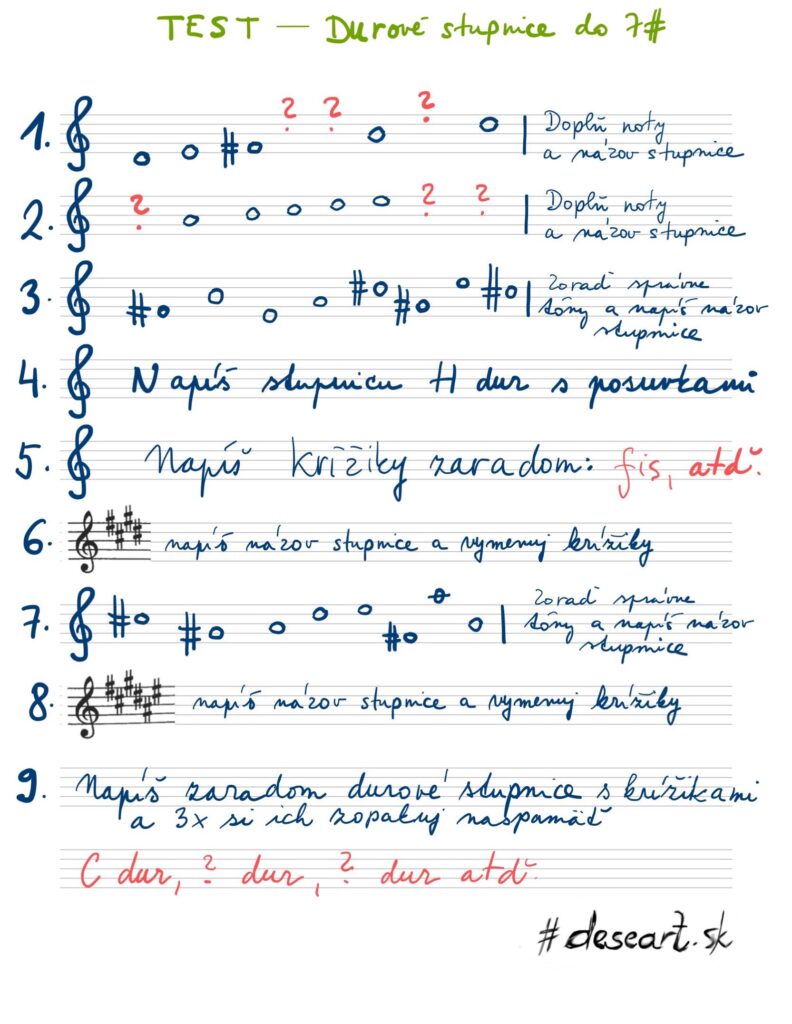 TEST — Durové stupnice do 7#
1. ? ? ? Doplň noty
a názov stupnice
2. ? ? ? Doplň noty
a názov stupnice
3. Zoraď správne
tóny a napíš názov
stupnice
4. Napíš stupnicu H dur s posuvkami
5. Napíš krížiky zaradom: fis, atď.
6. napíš názov stupnice a vymenuj krížiky
7. Zoraď správne
tóny a napíš názov
stupnice
8. napíš názov stupnice a vymenuj krížiky
9. Napíš zaradom durové stupnice s krížikami
a 3x si ich zopakuj naspamäť
C dur, ? dur, ? dur atď.
#deseart.sk